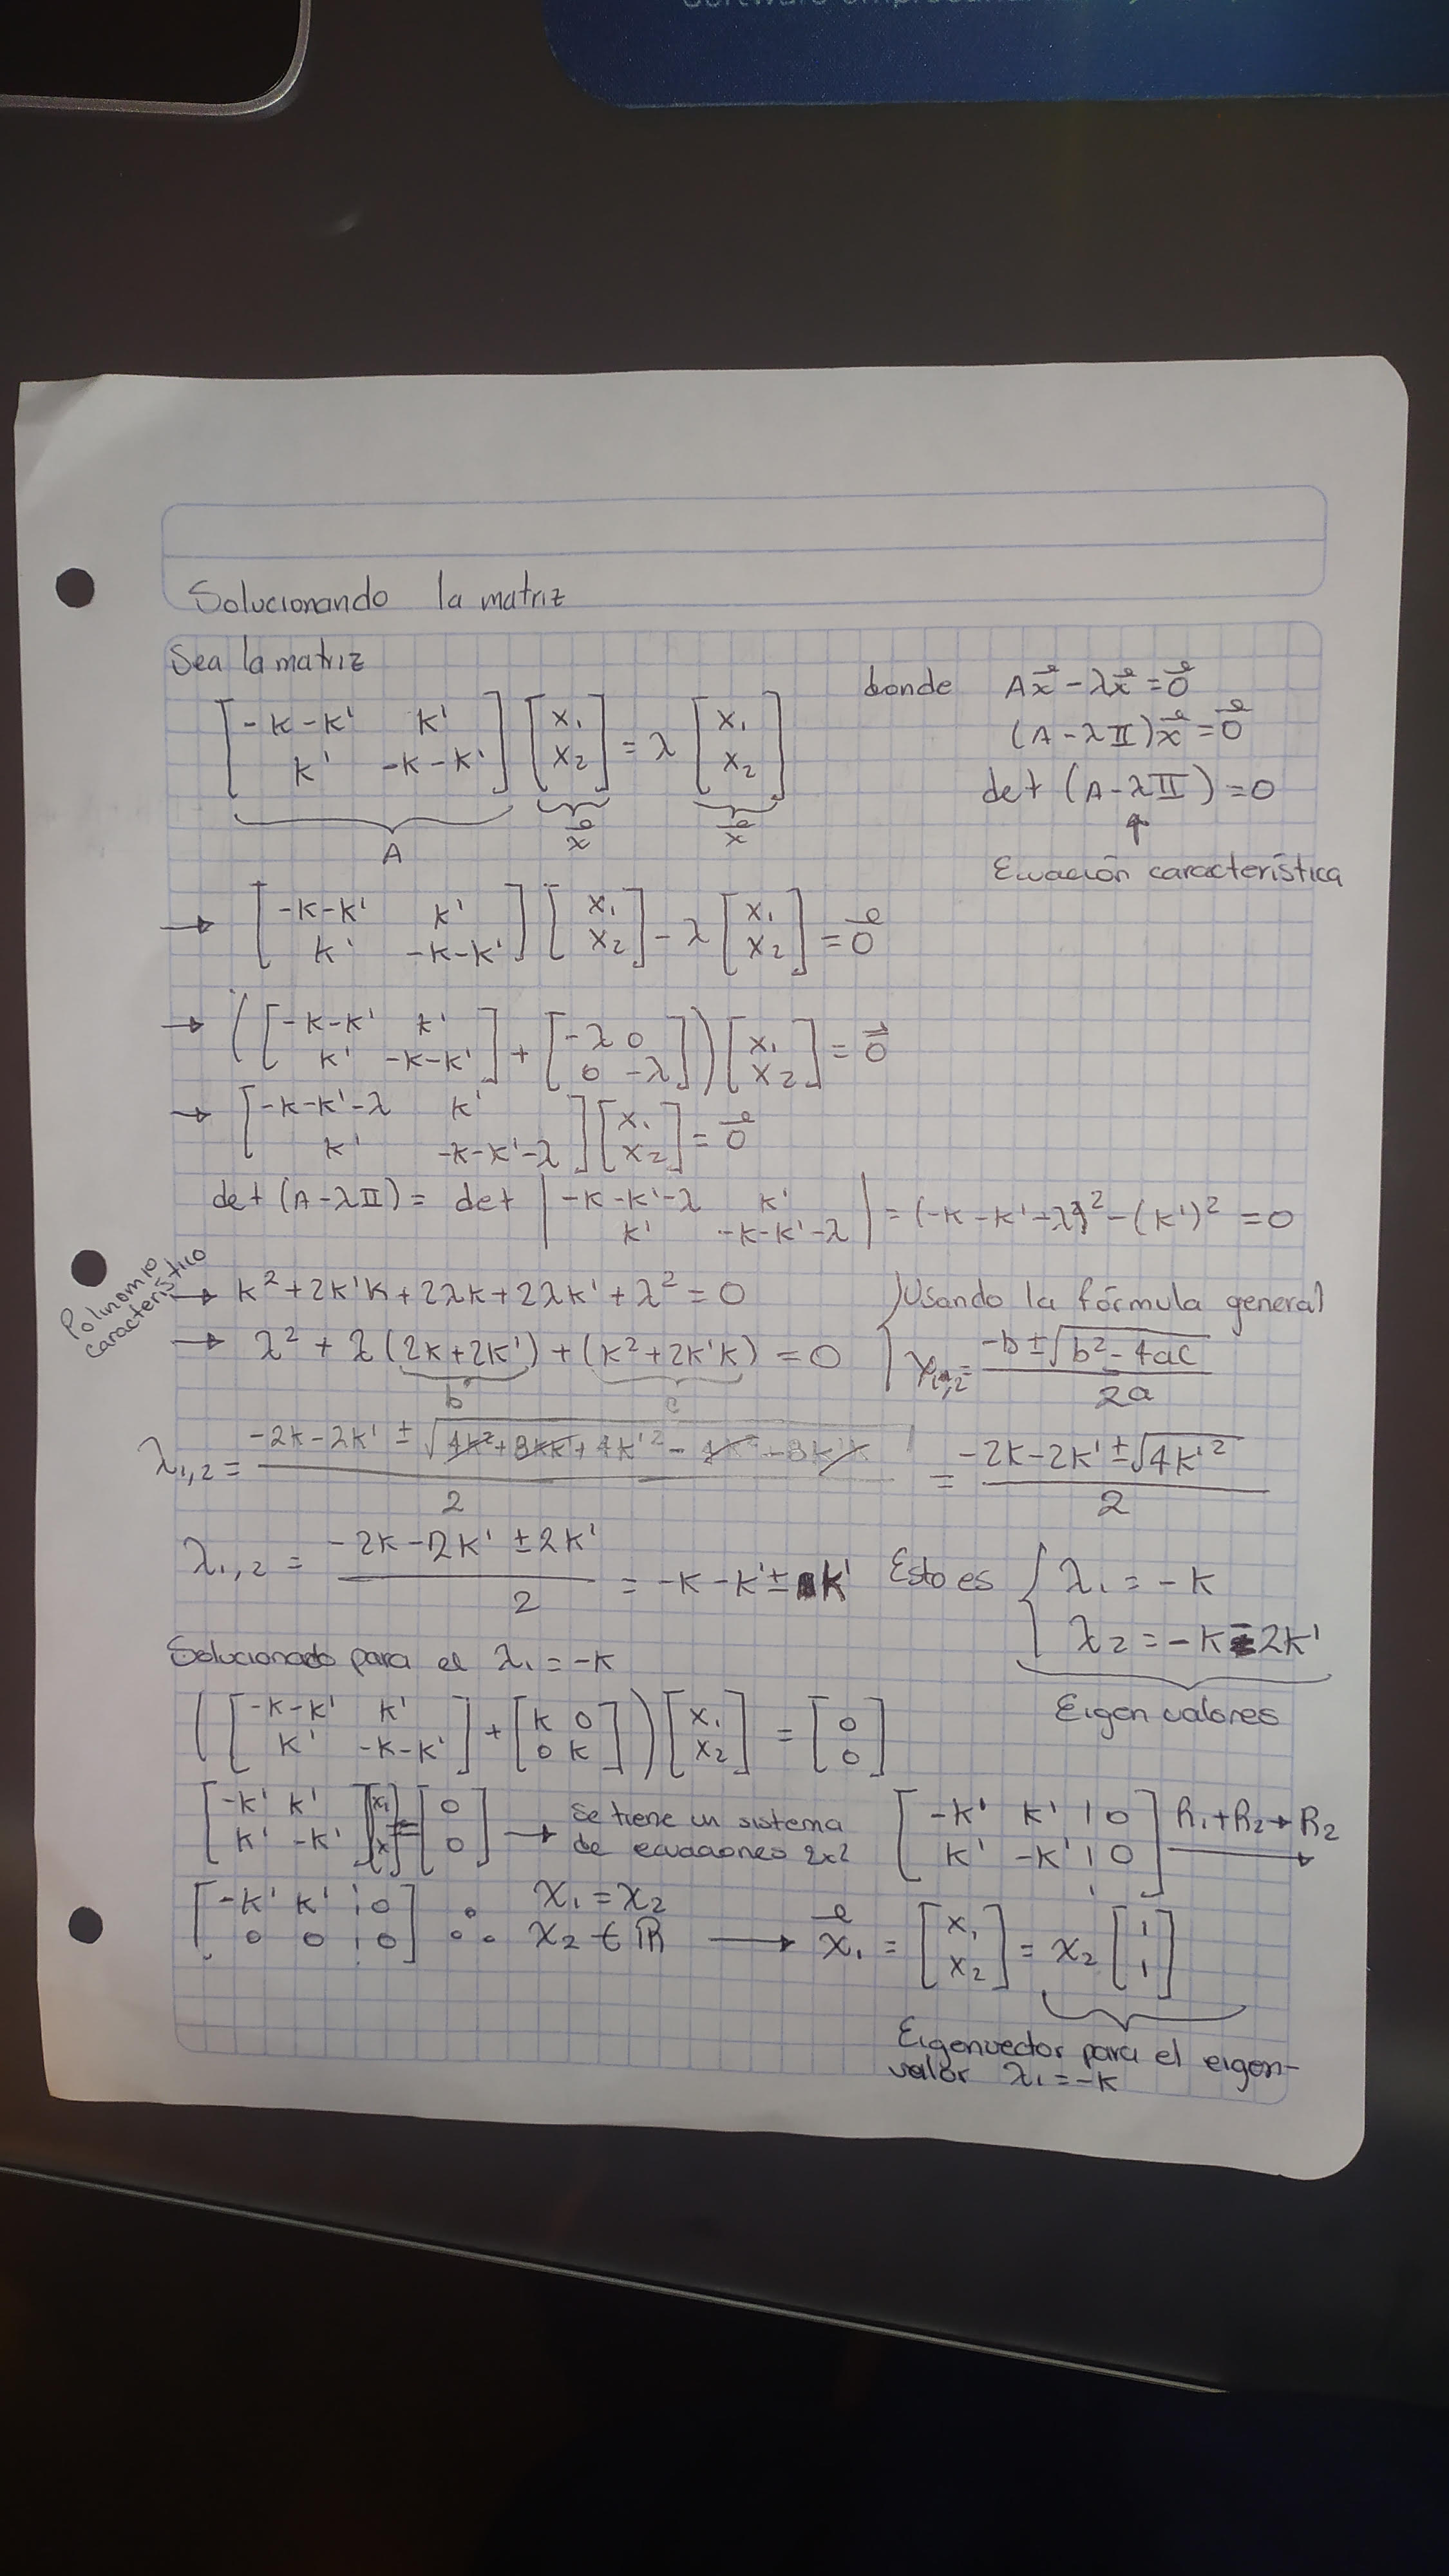 Solucionando la matriz
Sea la matriz
[-k-k' k'; k' -k-k'] [x₁; x₂] = λ [x₁; x₂]
A x⃗ x⃗
donde Ax⃗ - λx⃗ = 0⃗
(A - λII)x⃗ = 0⃗
det (A - λII) = 0
↑
Ecuación característica
→ [-k-k' k'; k' -k-k'] [x₁; x₂] - λ [x₁; x₂] = 0⃗
→ ([-k-k' k'; k' -k-k'] + [-λ 0; 0 -λ]) [x₁; x₂] = 0⃗
→ [-k-k'-λ k'; k' -k-k'-λ] [x₁; x₂] = 0⃗
det (A - λII) = det |-k-k'-λ k'; k' -k-k'-λ| = (-k-k'-λ)² - (k')² = 0
Polinomio característico
→ k² + 2k'k + 2λk + 2λk' + λ² = 0
→ λ² + λ(2k+2k') + (k²+2k'k) = 0
b c
Usando la fórmula general
x₁,₂ = (-b ± √(b²-4ac)) / 2a
λ₁,₂ = (-2k-2k' ± √(4k²+8kk'+4k'²-4k²-8k'k)) / 2 = (-2k-2k' ± √(4k'²)) / 2
λ₁,₂ = (-2k-2k' ± 2k') / 2 = -k-k' ± k' Esto es { λ₁ = -k
λ₂ = -k-2k'
Eigen valores
Solucionado para el λ₁ = -k
([-k-k' k'; k' -k-k'] + [k 0; 0 k]) [x₁; x₂] = [0; 0]
[-k' k'; k' -k'] [x₁; x₂] = [0; 0] → Se tiene un sistema de ecuaciones 2x2 [-k' k' | 0; k' -k' | 0] R₁+R₂→R₂
[-k' k' | 0; 0 0 | 0] ∴ x₁ = x₂
x₂ ∈ ℝ → x⃗₁ = [x₁; x₂] = x₂ [1; 1]
Eigenvector para el eigen-
valor λ₁ = -k